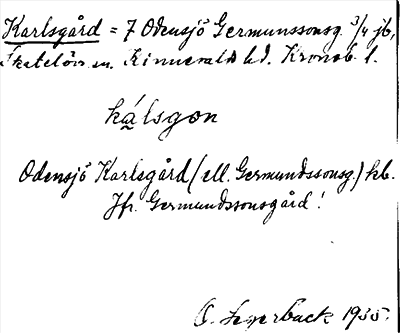 Karlsgård = 7 Odensjö Germunssonsg. 3/4 jb,
Skatelövs sn. Kinnevalds hd. Kronob. l.
kálsgon
Odensjö Karlsgård (ell. Germundssonsg.) kb.
Jfr. Germundssonsgård!
1935.